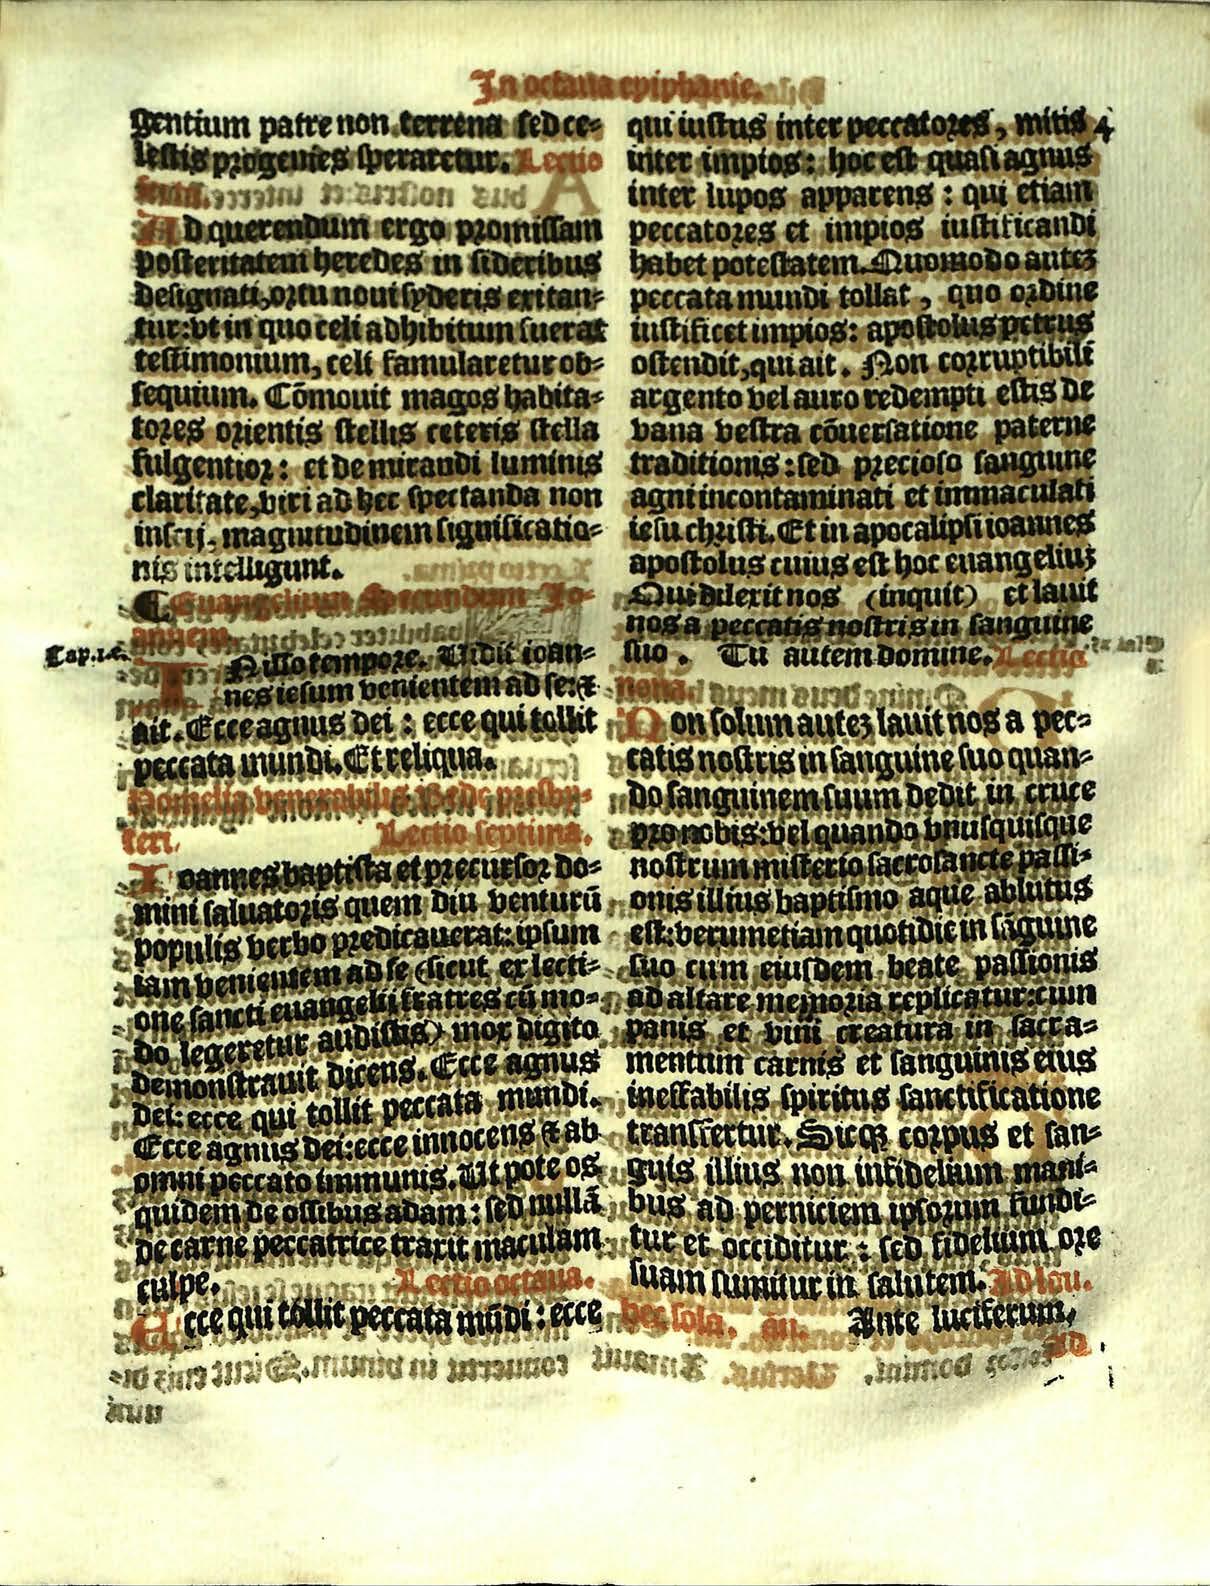 In octaua epiphanie.
gentium patre non terrena sed ce-
lestis progenies speraretur. Lectio
sexta.
Ad querendum ergo promissam
posteritatem heredes in sideribus
designati, ortu noui syderis exitan-
tur: vt in quo celi adhibitum fuerat
testimonium, celi famularetur ob-
sequium. Cōmouit magos habita-
tores orientis stellis ceteris stella
fulgentior: et de mirandi luminis
claritate, viri ad hec spectanda non
inscij, magnitudinem significatio-
nis intelligunt.
¶ Euangelium Secundum Jo-
annem.
Cap.1.c.
IN illo tempore. Uidit ioan-
nes iesum venientem ad se: &
ait. Ecce agnus dei: ecce qui tollit
peccata mundi. Et reliqua.
Homelia venerabilis Bede presby-
teri. Lectio septima.
Ioannes baptista et precursor do-
mini saluatoris quem diu venturū
populis verbo predicauerat: ipsum
iam venientem ad se (sicut ex lecti-
one sancti euangelij fratres cū mo-
do legeretur audistis) mox digito
demonstrauit dicens. Ecce agnus
dei: ecce qui tollit peccata mundi.
Ecce agnus dei: ecce innocens & ab
omni peccato immunis. Ut pote os
quidem de ossibus adam: sed nullā
de carne peccatrice traxit maculam
culpe. Lectio octaua.
Ecce qui tollit peccata mūdi: ecce
qui iustus inter peccatores, mitis
inter impios: hoc est quasi agnus
inter lupos apparens: qui etiam
peccatores et impios iustificandi
habet potestatem. Quomodo autez
peccata mundi tollat, quo ordine
iustificet impios: apostolus petrus
ostendit, qui ait. Non corruptibili
argento vel auro redempti estis de
vana vestra cōuersatione paterne
traditionis: sed precioso sanguine
agni incontaminati et immaculati
iesu christi. Et in apocalipsi ioannes
apostolus cuius est hoc euangeliuz
Qui dilexit nos (inquit) et lauit
nos a peccatis nostris in sanguine
suo. Tu autem domine. Lectio
nona.
Non solum autez lauit nos a pec-
catis nostris in sanguine suo quan-
do sanguinem suum dedit in cruce
pro nobis: vel quando vnusquisque
nostrum misterio sacrosancte passi-
onis illius baptismo aque ablutus
est: verumetiam quotidie in sāguine
suo cum eiusdem beate passionis
ad altare memoria replicatur: cum
panis et vini creatura in sacra-
mentum carnis et sanguinis eius
ineffabilis spiritus sanctificatione
transfertur. Sicqz corpus et san-
guis illius non infidelium mani-
bus ad perniciem ipsorum fundi-
tur et occiditur: sed fidelium ore
suam sumitur in salutem. Ad lau.
hec sola. añ. Ante luciferum,
Ad